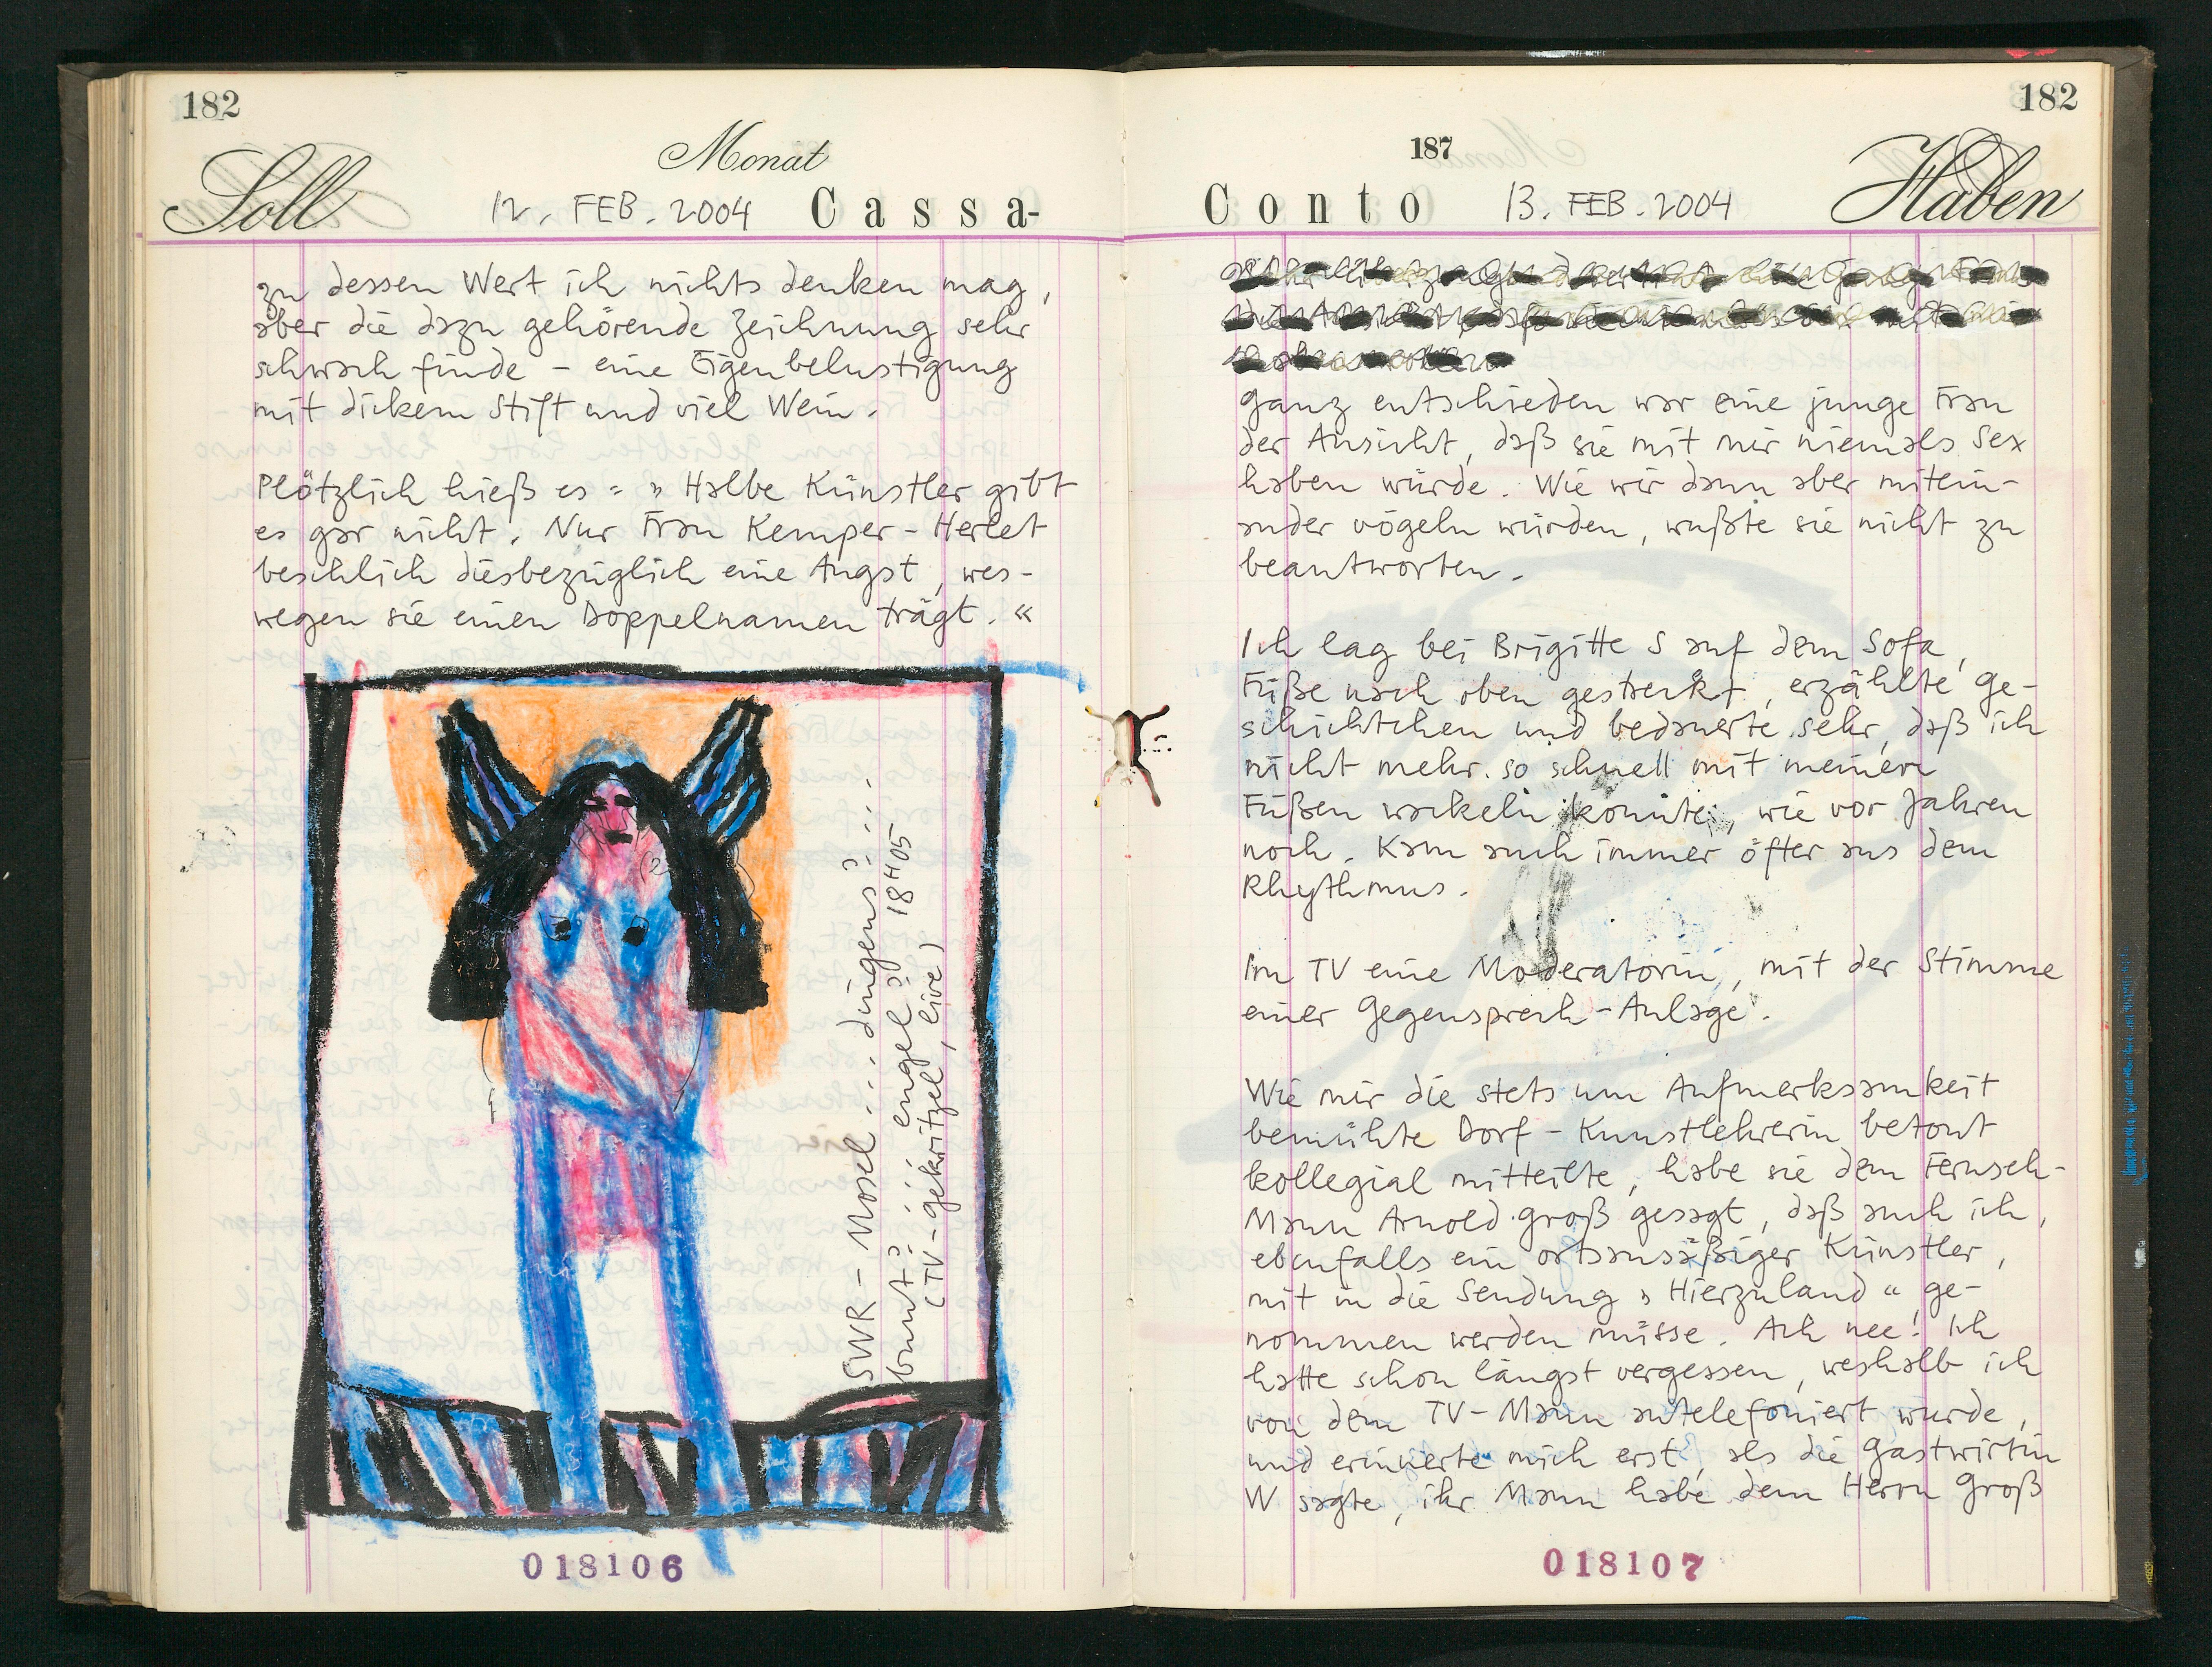 182
Soll
Monat
12. FEB. 2004 Cassa-
zu dessen Wert ich nichts denken mag,
aber die dazu gehörende Zeichnung sehr
schwach finde – eine Eigenbelustigung
mit dickem Stift und viel Wein.
Plötzlich hieß es: » Halbe Künstler gibt
es gar nicht. Nur Frau Kemper-Herlet
beschlich diesbezüglich eine Angst, wes-
wegen sie einen Doppelnamen trägt. «
SWR – Mosel ... düngens? ...
bunt? ... engel? 18H05
(TV-gekritzel, live)
018106
182
187
Conto 13. FEB. 2004
Haben
Ganz entschieden war eine junge Frau
der Ansicht, daß sie mit mir niemals Sex
haben würde. Wie wir dann aber mitein-
ander vögeln würden, wußte sie nicht zu
beantworten.
Ich lag bei Brigitte S auf dem Sofa,
Füße nach oben gestreckt, erzählte Ge-
schichtchen und bedauerte sehr, daß ich
nicht mehr so schnell mit meinen
Füßen wackeln konnte, wie vor Jahren
noch. Kam auch immer öfter aus dem
Rhythmus.
Im TV eine Moderatorin, mit der Stimme
einer Gegensprech-Anlage.
Wie mir die stets um Aufmerksamkeit
bemühte Dorf-Kunstlehrerin betont
kollegial mitteilte, habe sie dem Fernseh-
Mann Arnold Groß gesagt, daß auch ich,
ebenfalls ein ortsansäßiger Künstler,
mit in die Sendung » Hierzuland « ge-
nommen werden müsse. Ach nee! Ich
hatte schon längst vergessen, weshalb ich
von dem TV-Mann antelefoniert wurde,
und erinnerte mich erst, als die Gastwirtin
W sagte, ihr Mann habe dem Herrn Groß
018107